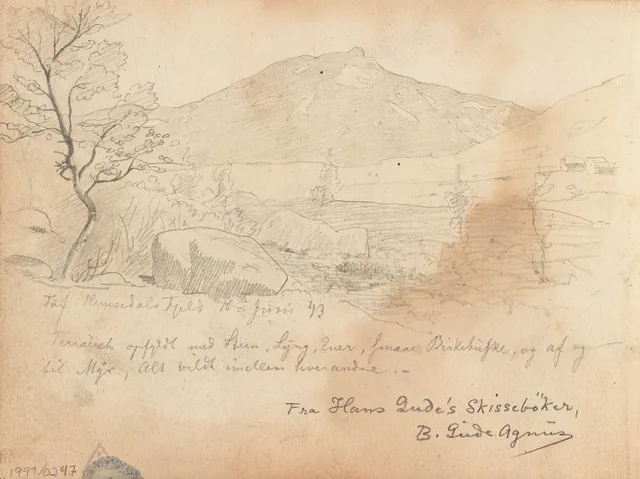 Hemsedals Fjeld 16 Juni 43
Terrainet opfyldt med Steen, Lÿng, Ener, smaae Birkebuske, og af og
til Myr, Alt vildt imellem hverandre. -
Fra Hans Gude's Skissebøker,
B. Gude Agnüs
1999/0247